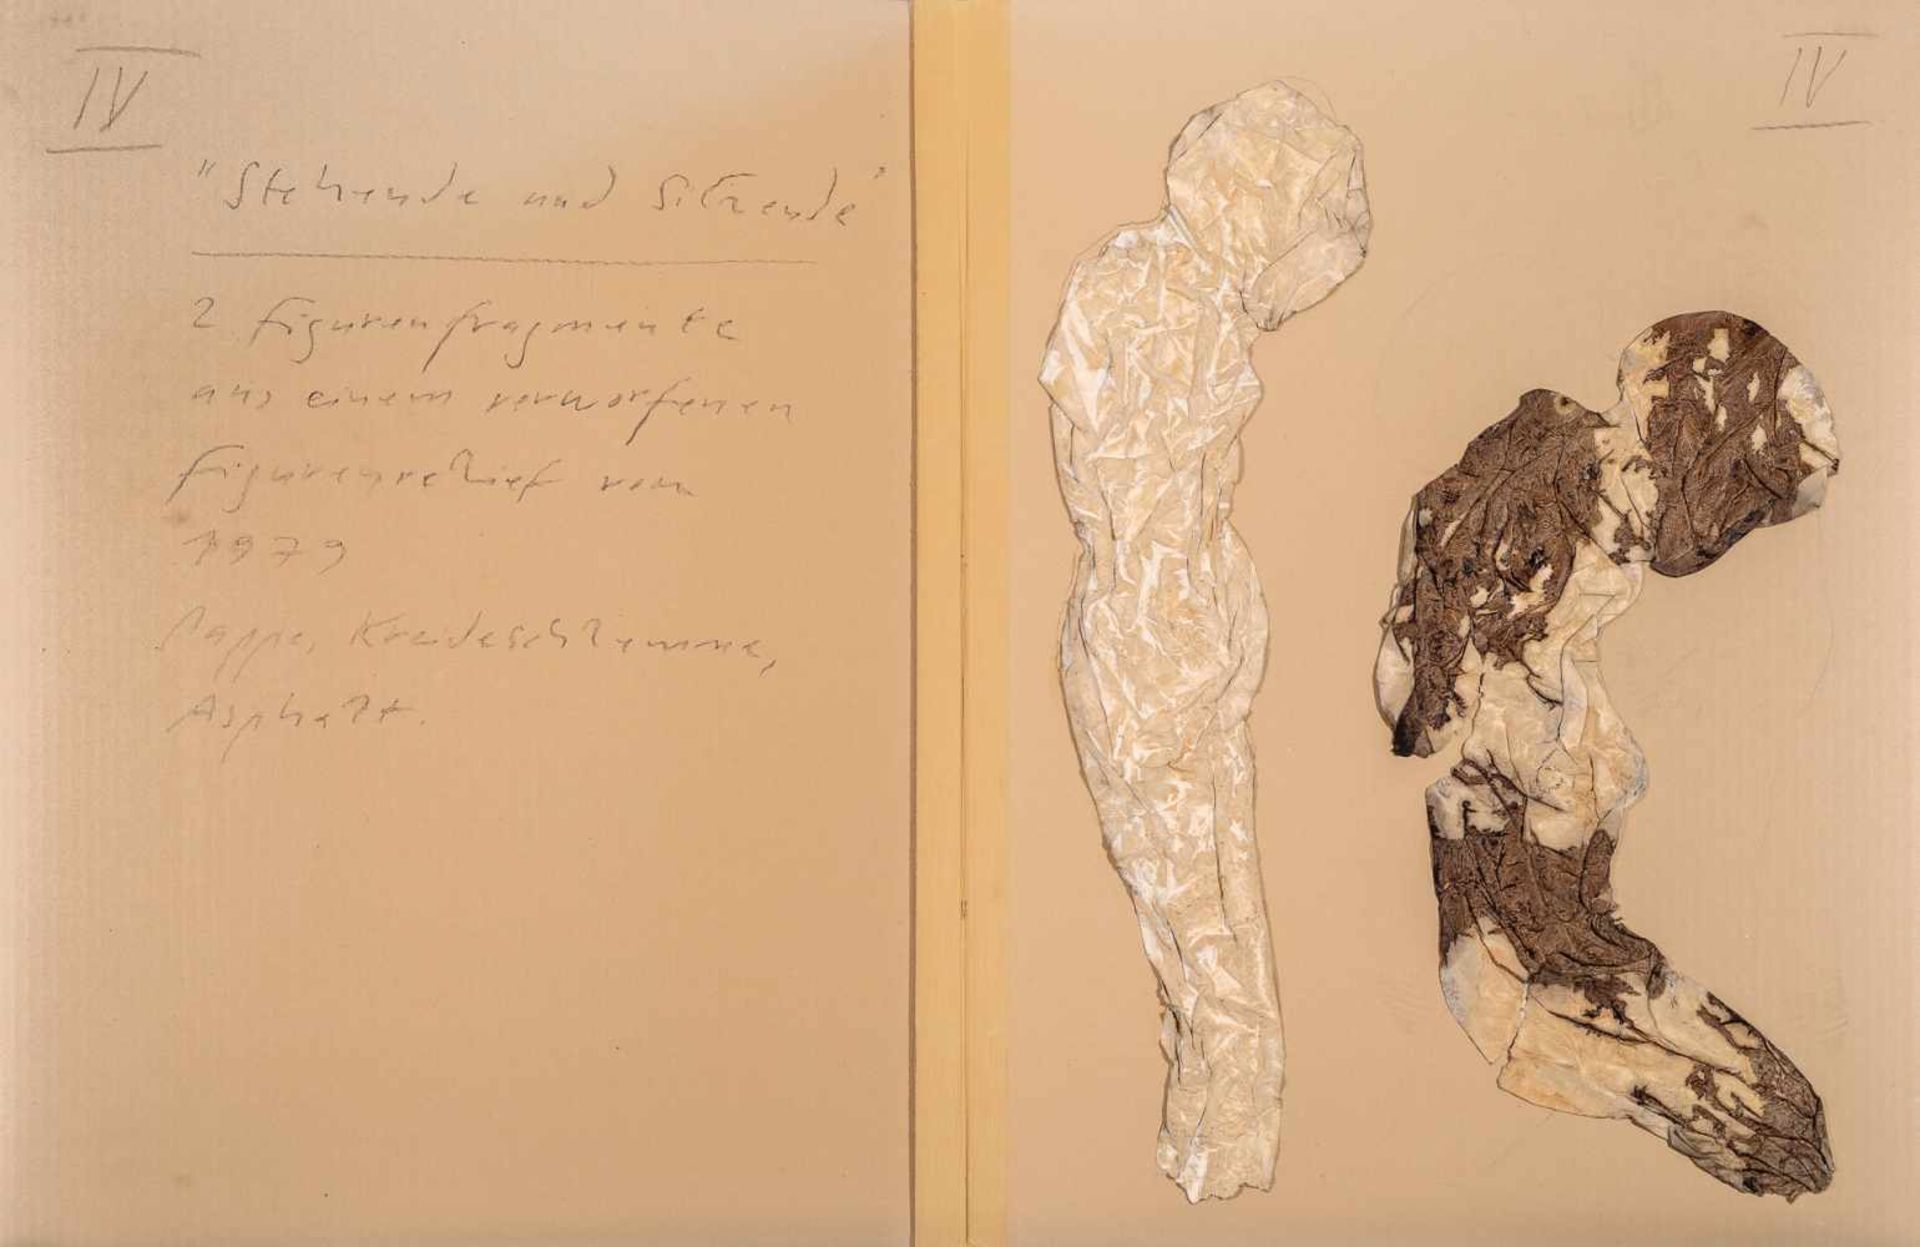 IV
"Stehende und Sitzende"
2 Figurenfragmente
aus einem verworfenen
Figurenrelief vom
1979
Pappe, Kreideschlemme,
Asphalt.
IV